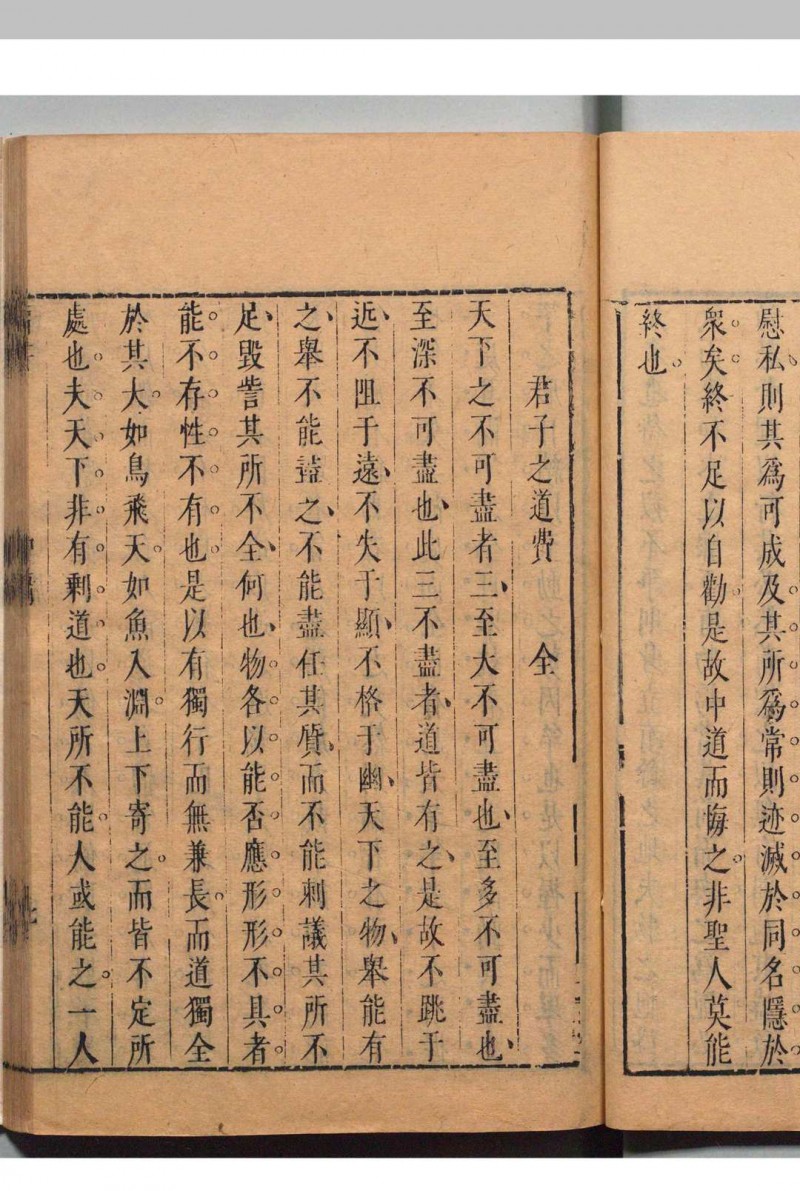 慰私則其爲可成及其所爲常則迹滅於同名隱於
衆矣終不足以自勸是故中道而悔之非聖人莫能
終也
君子之道費 全
天下之不可盡者三至大不可盡也至多不可盡也
至深不可盡也此三不盡者道皆有之是故不跳于
近不阻于遠不失于顯不格于幽天下之物舉能有
之舉不能盡之不能盡任其質而不能刺議其所不
足毀訾其所不全何也物各以能否應形形不具者
能不存性不有也是以有獨行而無兼長而道獨全
於其大如鳥飛天如魚入淵上下寄之而皆不定所
處也夫天下非有剩道也天所不能人或能之一人